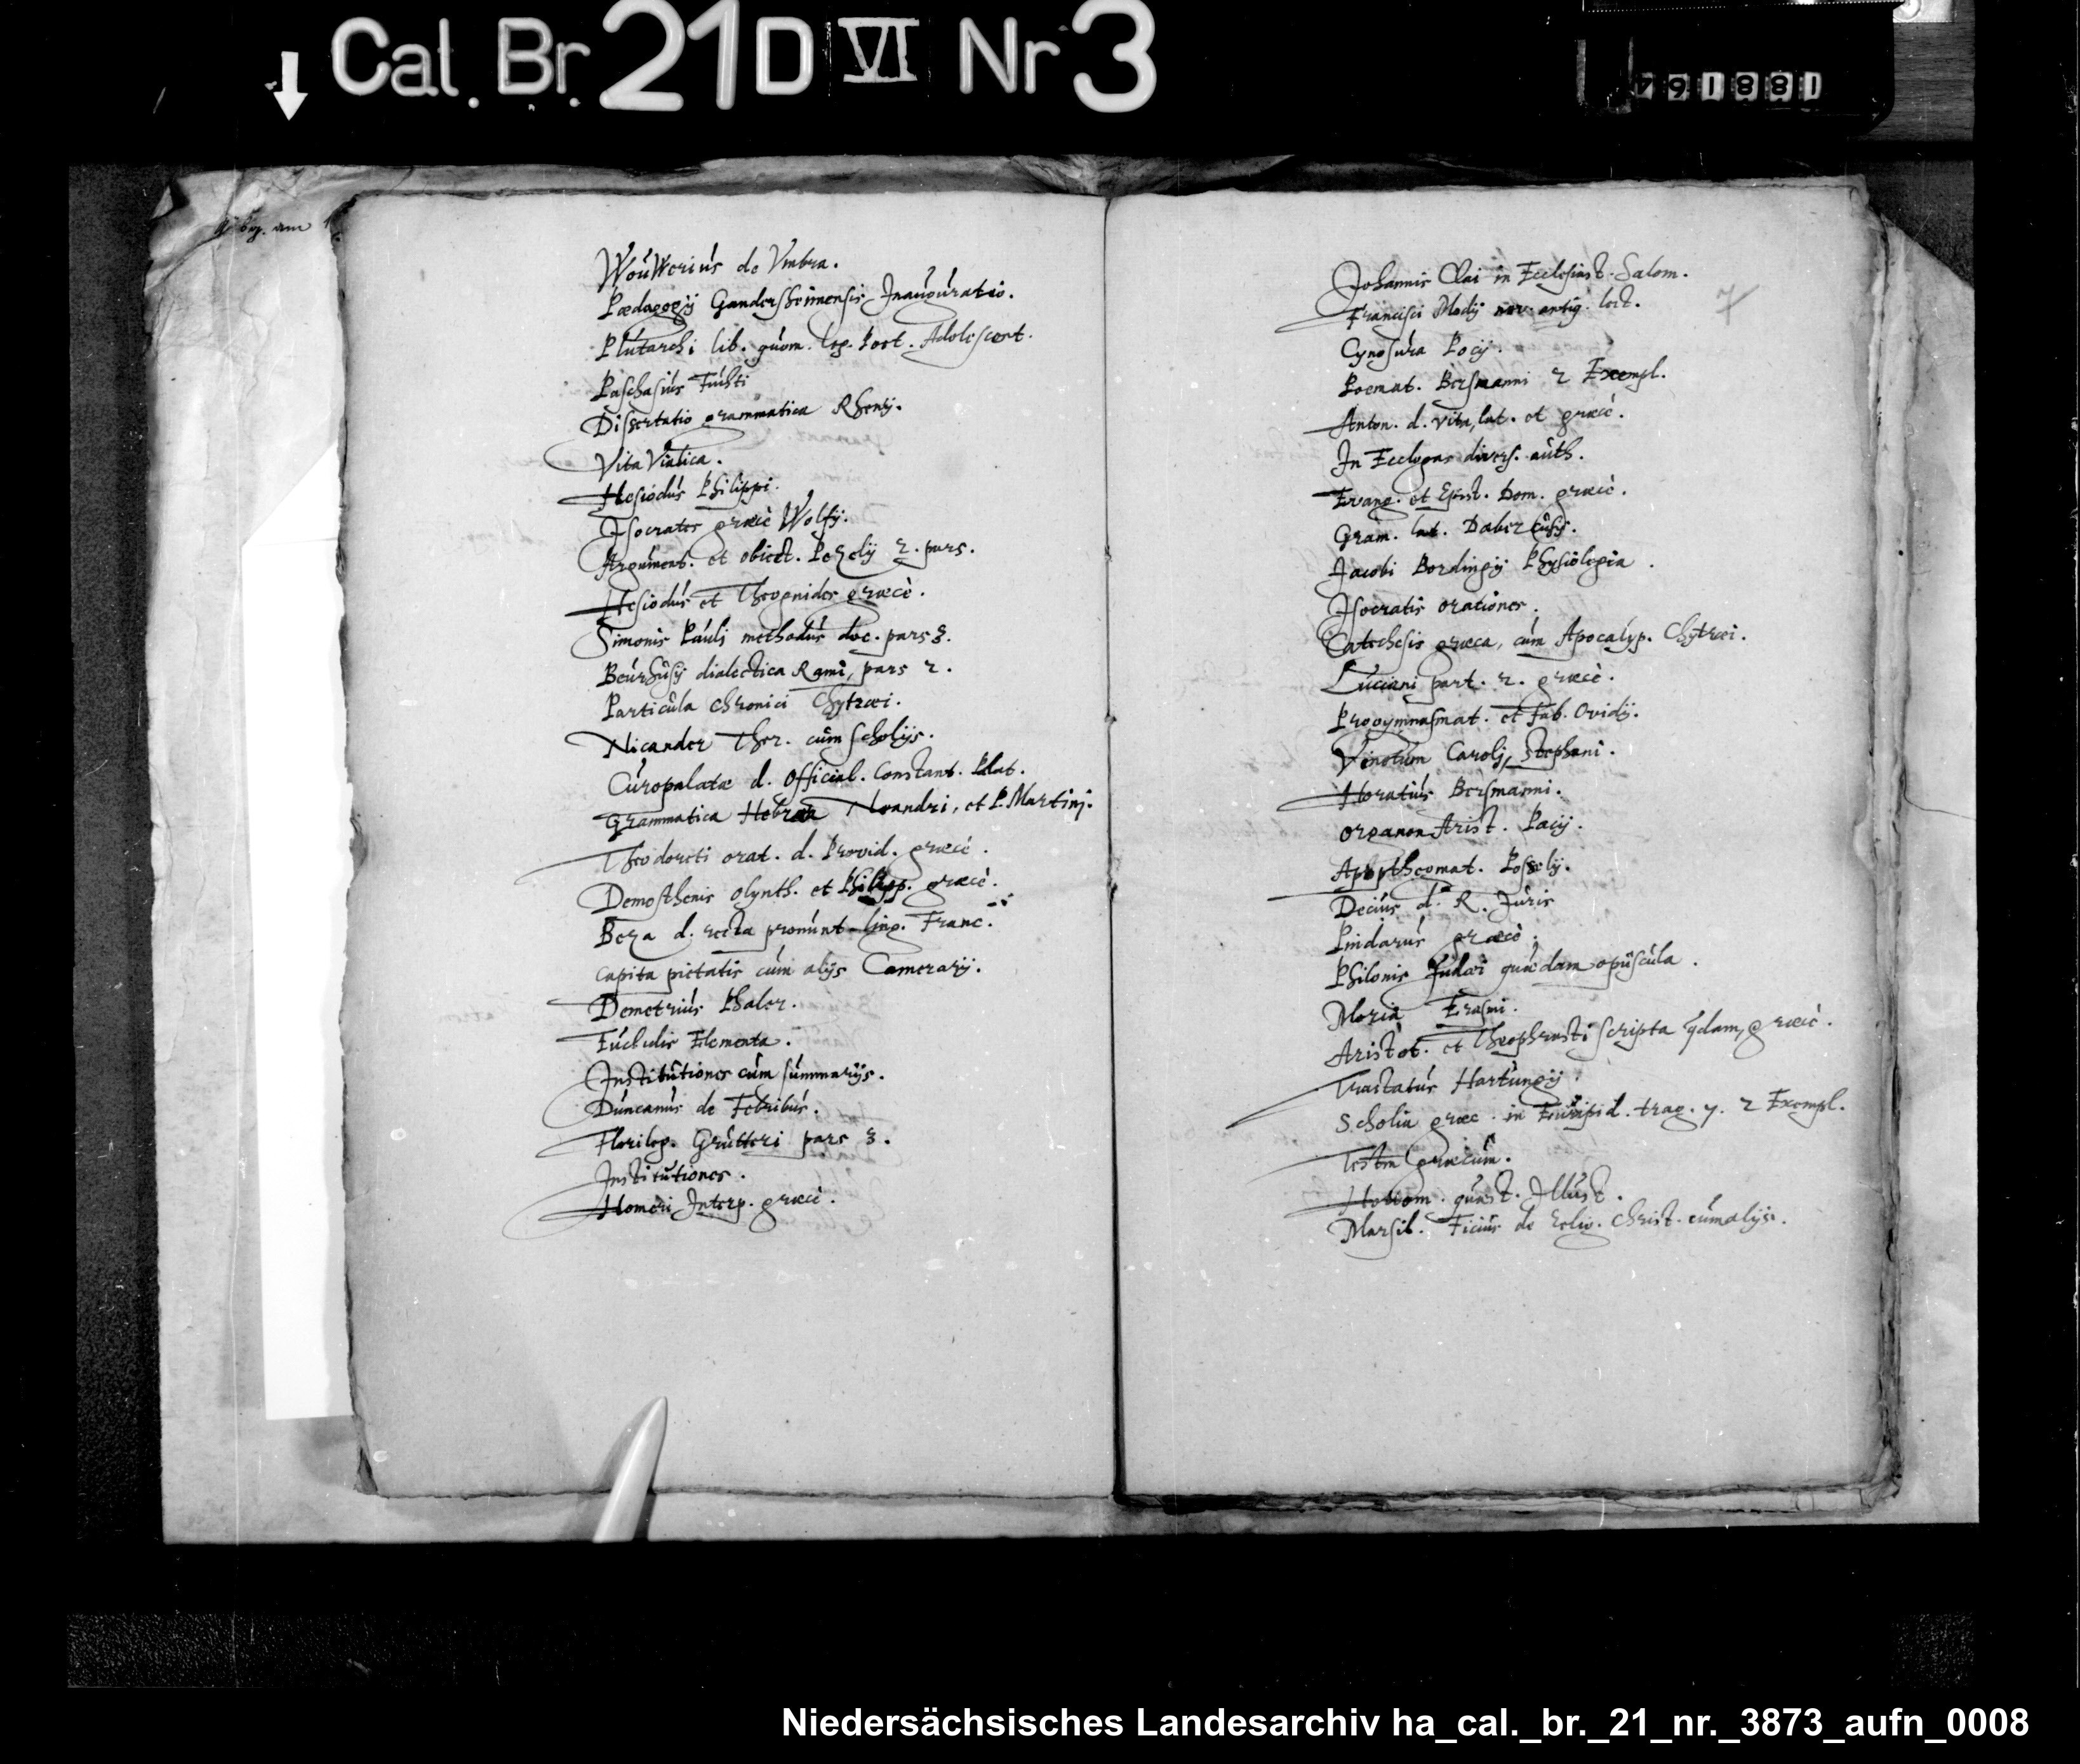 Cal. Br. 21 D VI Nr 3
1881694
Woúwerius de Vmbra.
Pædagogij Gandersheimensis Inauguratio.
Plutarchi lib. quom. leg. Poet. Adolescent.
Paschasius Justi
Dissertatio grammatica Rhenij.
Vita Vialica.
Hesiodus Philippi.
Isocrates græcè Wolfij.
Argument. et obiect. Pezelij 2. pars.
Hesiodus et Theognides græcè.
Simonis Pauli methodus doc. pars 3.
Beurhusij dialectica Rami, pars 2.
Particula chronici Chytræi.
Nicander Ther. cum scholijs.
Curopalatæ d. Official. Constant. Palat.
Grammatica Hebræa Neandri, et P. Martinj.
Theodoreti orat. d. Provid. græcè.
Demosthenis olynth. et Philipp. græcè.
Beza d. recta pronunt. ling. Franc.
Capita pietatis cum alijs Camerarij.
Demetrius Phaler.
Euclidis Elementa.
Institutiones cum summarijs.
Duncanus de Febribus.
Florileg. Grutteri pars 3.
Institutiones.
Homeri Interp. græcè.
7
Johannis Clai in Ecclesiast. Salom.
Francisci Modij nov. antiq. lect.
Cynosura Pocij.
Poemat. Bersmanni 2 Exempl.
Anton. d. vita, lat. et græcè.
In Ecclogas divers. auth.
Evang. et Epist. Dom. græcè.
Gram. lat. Dabercusij.
Jacobi Bordingij Physiologia.
Isocratis orationes.
Catechesis græca, cum Apocalyp. Chytræi.
Luciani part. 2. græcè.
Progymnasmat. et Fab. Ovidij.
Vinetum Carolj Stephani.
Horatius Bersmanni.
Organon Arist. Pacij.
Apopthegmat. Posselij.
Decius d. R. Juris
Pindarus græcè.
Philonis Judæi quædam opuscula.
Moria Erasmi.
Aristot. et Theophrasti scripta qdam, græcè.
Tractatus Hartungij
Scholia græc. in Euripid. trag. 7. 2 Exempl.
Testm græcum.
Hottom. quæst. Illust.
Marsil. Ficius de relig. Christ. cum alijs.
Niedersächsisches Landesarchiv ha_cal._br._21_nr._3873_aufn_0008